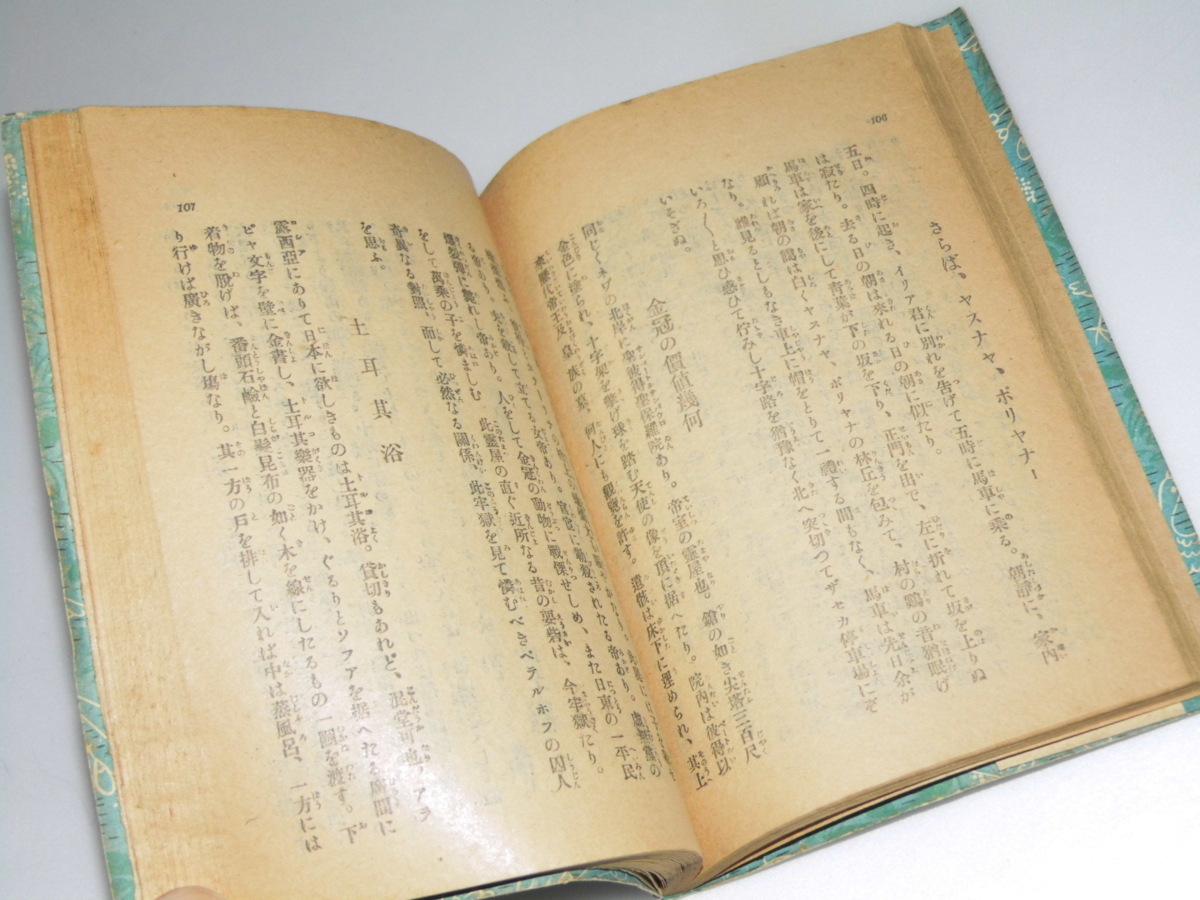 106
さらば、ヤスナヤ、ポリヤナ！
五日。四時に起き、イリア君に別れを告げて五時に馬車に乘る。朝靜に、家内
は寂たり。去る日の朝は來れる日の朝に似たり。
馬車は家を後にして青葉が下の坂を下り、正門を出で、左に折れて坂を上りぬ
顧れば朝の靄は白くヤスナヤ、ポリヤナの林丘を包みて、村の鷄の音猶眠げ
なり。誰見るとしもなき車上に帽をとりて一禮する間もなく、馬車は先日余が
いろ〱と思ひ惑ひて佇みし十字路を猶豫なく北へ突切つてザセカ停車場にぞ
いそぎぬ。
金冠の價値幾何
同じくネワの北岸に聖彼得堡保羅院あり。帝室の靈屋也。鎗の如き尖塔三百尺
金色に塗られ、十字架を擎げ球を踏む天使の像を頂に据へたり。院内は彼得以
來歷代帝王及皇族の墓、何人にも觀覽を許す。遺骸は床下に埋められ、其上
る帝あり。夫を殺して立てる女帝あり。
爆裂彈に斃れし帝あり。人をして金冠の動物に戰慄せしめ、また日東の一平民
をして萬乘の子を憐ましむ 此靈屋の直ぐ近所なる昔の要砦は、今牢獄たり。
奇異なる對照、而して必然なる關係、此牢獄を見て憐むべきペテルホフの囚人
を思ふ。
107
土耳其浴
露西亞にありて日本に欲しきものは土耳其浴。貸切もあれど、混堂可也。アラ
ビヤ文字を壁に金書し、土耳其樂器をかけ、ぐるりとソフアを据へたる廣間に
着物を脱げば、番頭石鹼と白髮昆布の如く木を線にしたるもの一個を渡す。下
り行けば廣きながし塲なり。其一方の戸を排して入れば中は蒸風呂、一方には